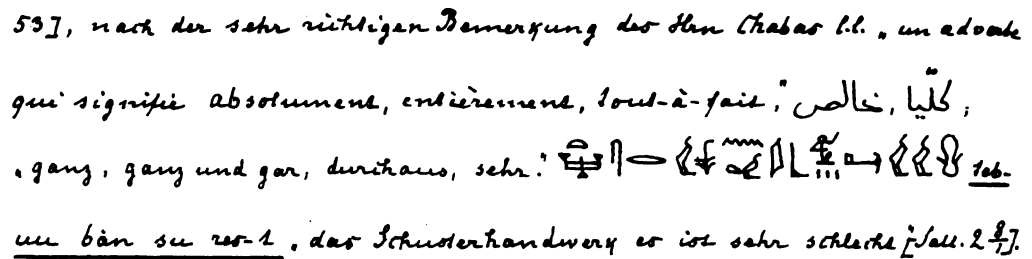 53], nach der sehr richtigen Bemerkung des Hrn Chabas l.l. „un adverbe
qui signifie absolument, entièrement, tout-à-fait," خالص, كلّيًا,
„ganz, ganz und gar, durchaus, sehr."
bàn su „das Schusterhandwerk es ist sehr schlecht [Sall. 2